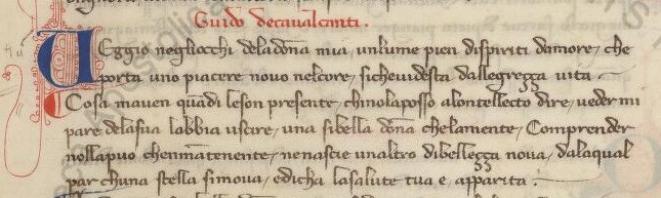 Guido decaualcanti.
Veggio negliocchi deladōna mia, unlume pien dispiriti damore, che
porta uno piacere novo nelcore, sicheuidesta dallegreçça uita.
Cosa mauen quādi leson presente, chinolaposso alontellecto dire, ueder mi
pare delasua labbia uscire, una sibella dōna chelamente, Comprender
nollapuo chenmātenente, nenascie unaltro dibelleçça noua, dalaqual
par chuna stella simoua, edicha lasalute tua e, apparita.